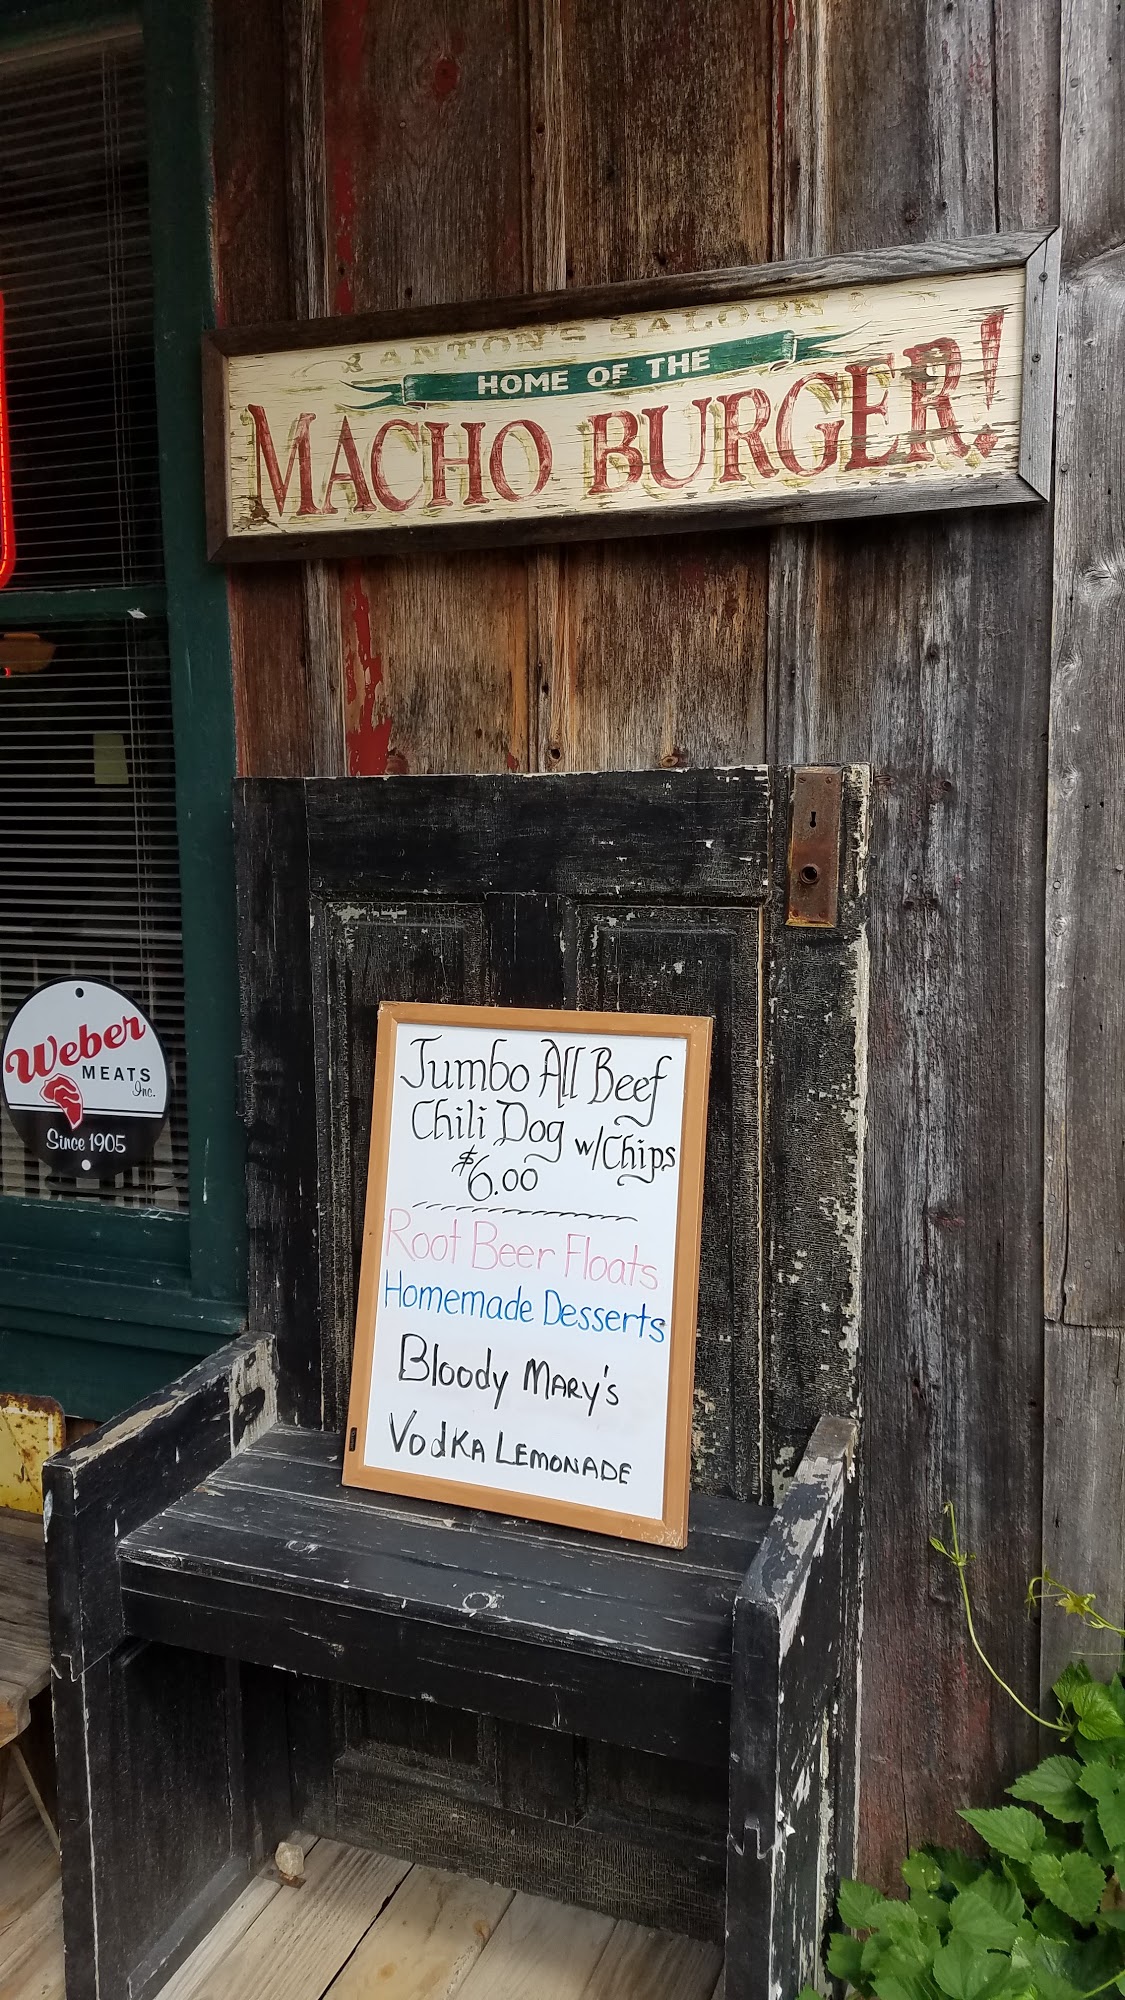 ANTON'S SALOON
HOME OF THE
MACHO BURGER!
Weber
MEATS
Inc.
Since 1905
Jumbo All Beef
Chili Dog w/Chips
$6.00
Root Beer Floats
Homemade Desserts
Bloody MARY'S
VodKA LEMONADE